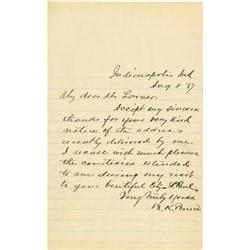 Indianapolis Ind
Aug 8 '87
My dear Mr
Accept my sincere
thanks for your very kind
notice of the address
recently delivered by me.
I recall with much pleasure
the courtesies extended
to me during my visit
to your beautiful City
Very truly yours
B. K. Bruce